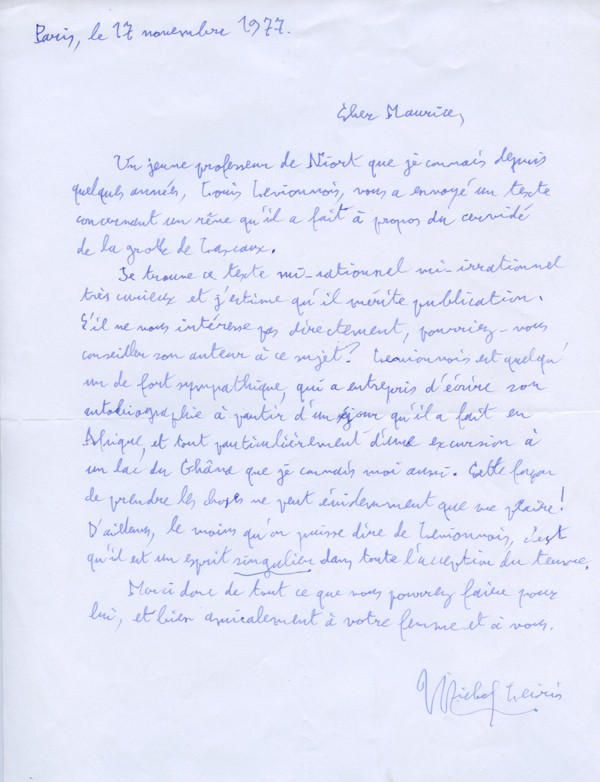 Paris, le 17 novembre 1977.
Cher Maurice,
Un jeune professeur de Niort que je connais depuis
quelques années, Louis, vous a envoyé un texte
concernant un rêve qu'il a fait à propos du cervidé
de la grotte de Lascaux.
Je trouve ce texte mi-rationnel mi-irrationnel
très curieux et j'estime qu'il mérite publication.
S'il ne vous intéresse pas directement, pourriez-vous
conseiller son auteur à ce sujet? est quelqu'
un de fort sympathique, qui a entrepris d'écrire son
autobiographie à partir d'un séjour qu'il a fait en
Afrique, et tout particulièrement d'une excursion à
un lac du Ghâna que je connais moi aussi. Cette façon
de prendre les choses ne peut évidemment que me plaire!
D'ailleurs, le moins qu'on puisse dire de, c'est
qu'il est un esprit singulier dans toute l'acception du terme.
Merci donc de tout ce que vous pourrez faire pour
lui, et bien amicalement à votre femme et à vous.
Michel Leiris